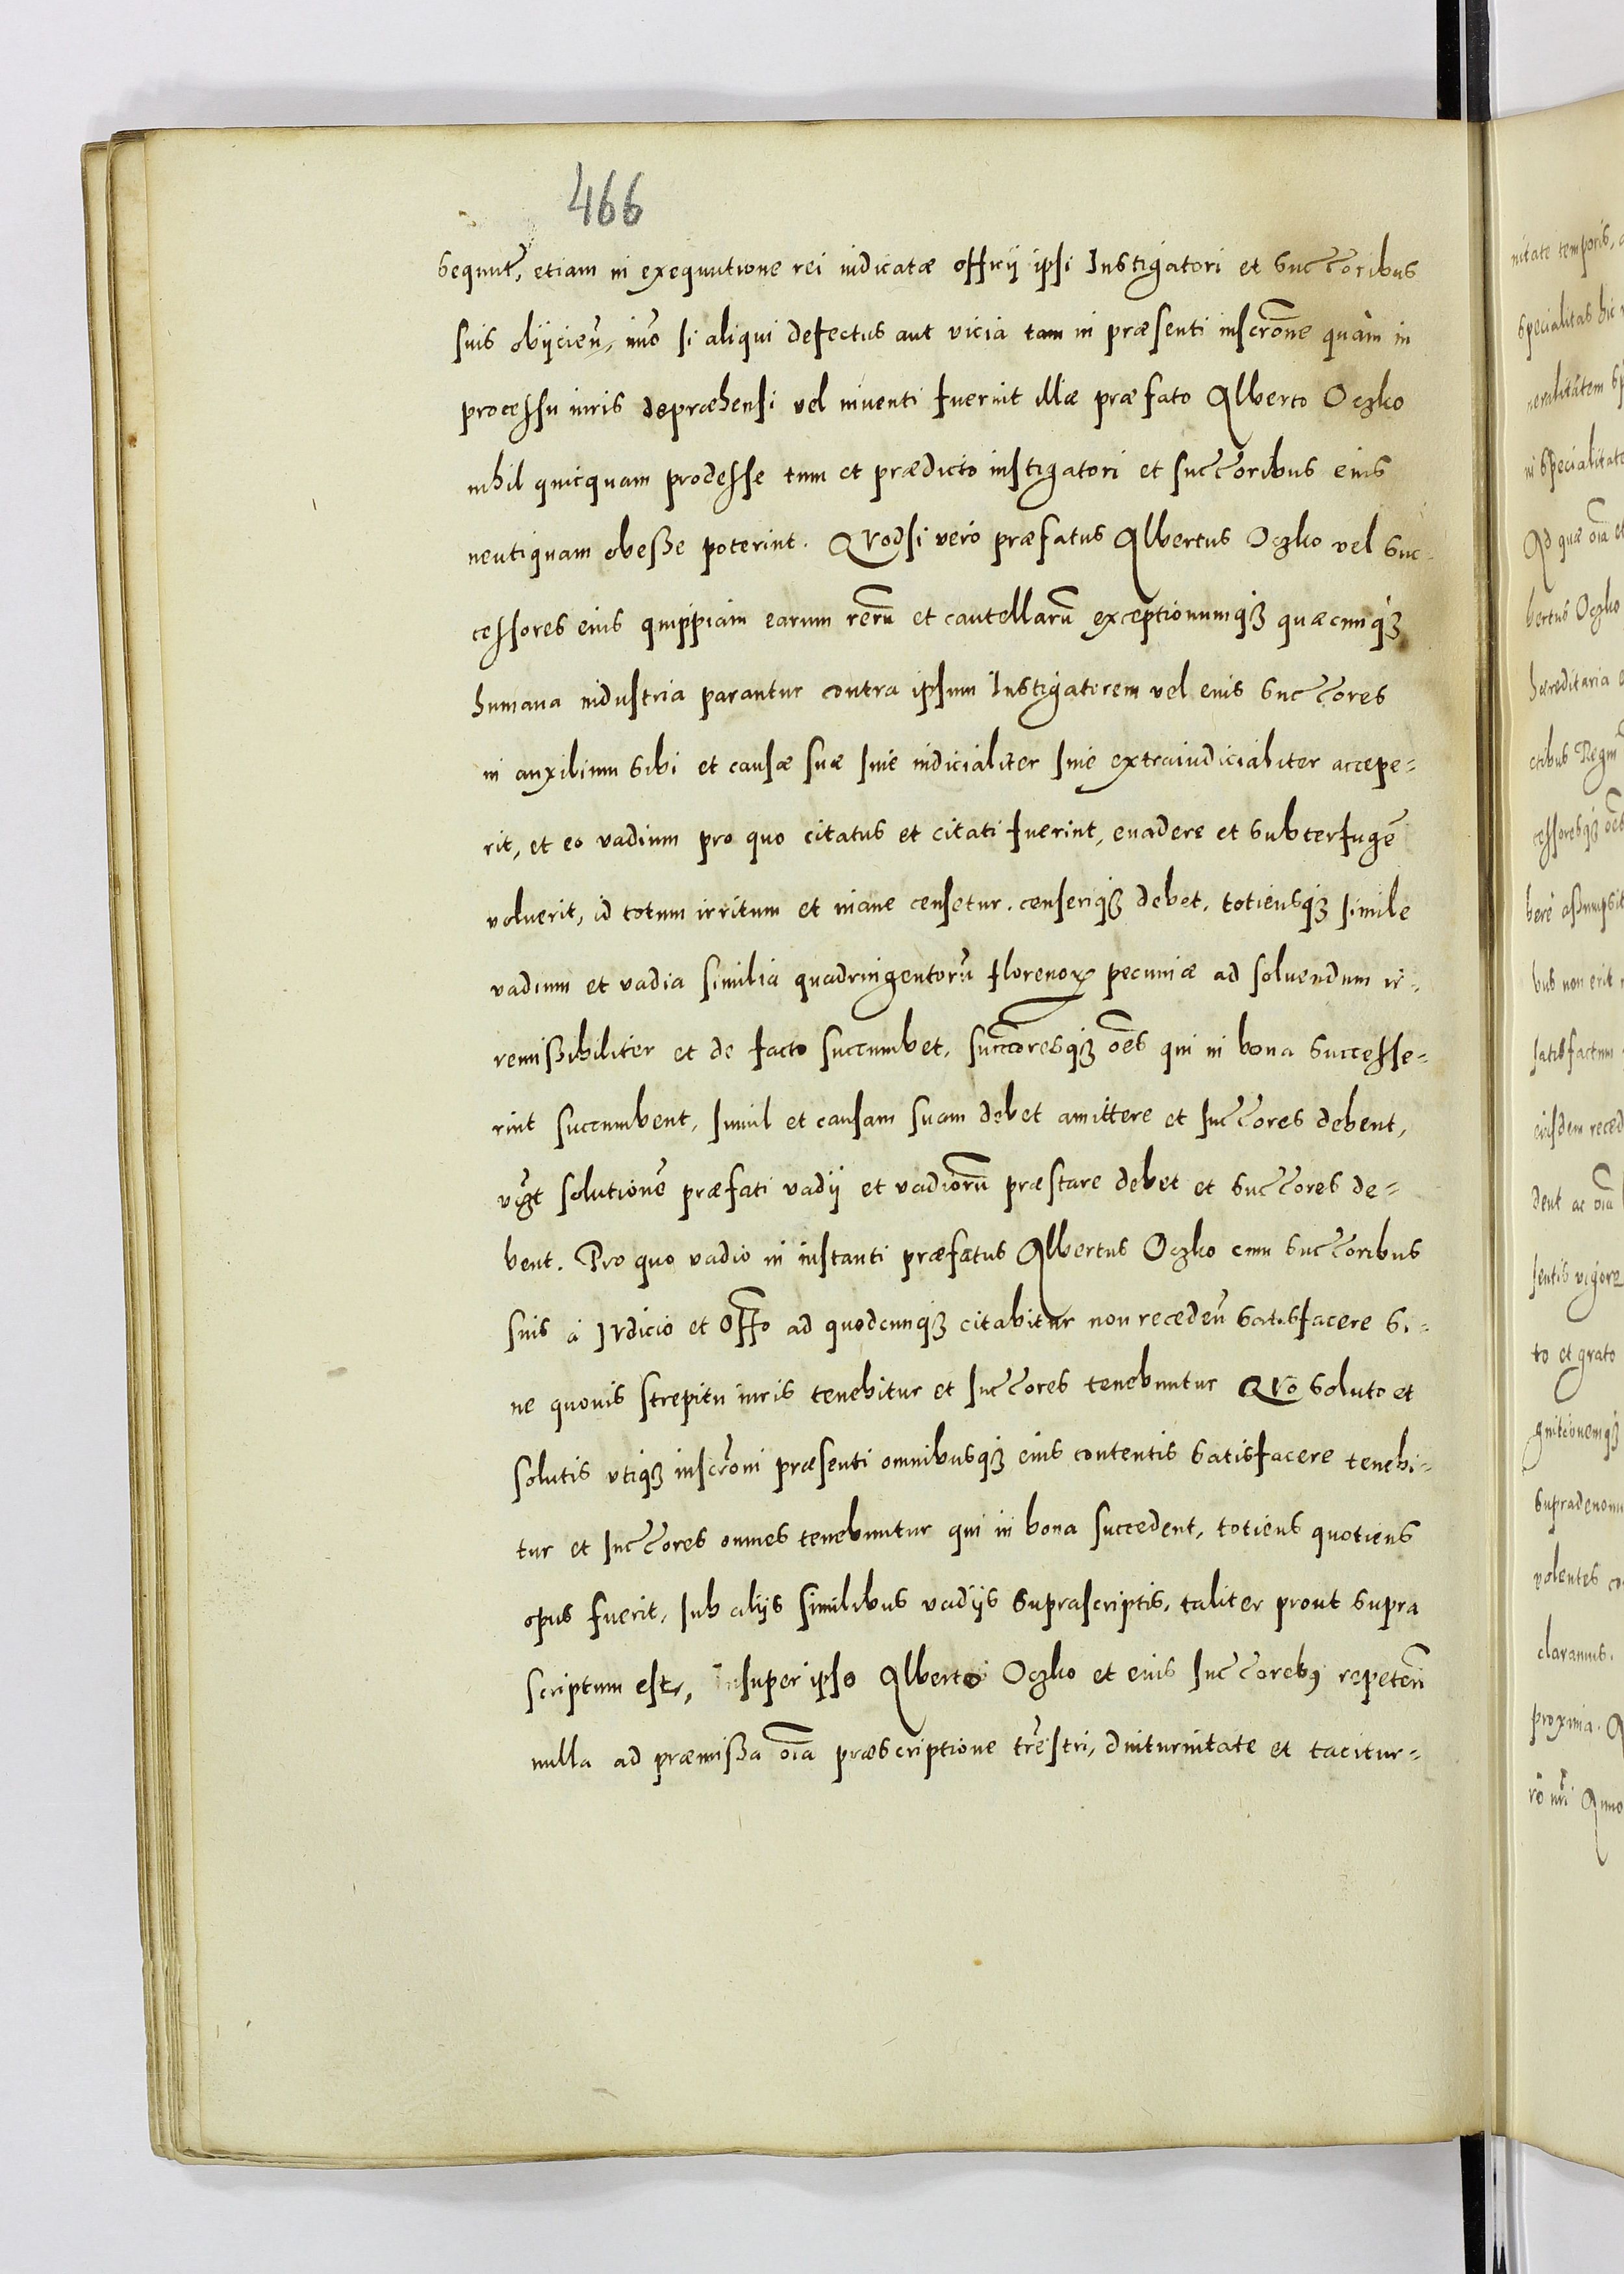 466
sequut̃, etiam in exequutione rei iudicatæ officij ipsi Instigatori et succ̃oribus
suis obijcieñ, imo si aliqui defectus aut vicia tam in præsenti inscr̃one quàm in
processu iuris depræhensi vel inuenti fuerint illæ præfato Alberto Oczko
nihil quicquam prodesse tum et prædicto instigatori et succ̃oribus eius
neutiquam obesse poterint. Quodsi vero præfatus Albertus Oczko vel suc-
cessores eius quippiam earum rerũ et cautellarũ exceptionumqꝫ quæcunqꝫ
humana industria parantur contra ipsum Instigatorem vel euis succ̃ores
in auxilium sibi et causæ suæ siue iudicialiter siue extraiudicialiter accepe-
rit, et eo vadium pro quo citatus et citati fuerint, euadere et subterfugẽ
voluerit, id totum irritum et inane censetur. censeriqꝫ debet, totiensqꝫ simile
vadium et vadia similia quadringentorũ florenoꝝ pecuniæ ad soluendum ir-
remißibiliter et de facto succumbet, succ̃oresqꝫ oẽs qui in bona successe-
rint succumbent, simul et causam suam debet amittere et succ̃ores debent,
vigt̃ solutionẽ præfati vadij et vadiorũ præstare debet et succ̃ores de-
bent. Pro quo vadio in instanti præfatus Albertus Oczko cum succ̃oribus
suis á Iudicio et Offo ad quodcunqꝫ citabitur non recedeñ satisfacere si-
ne quouis strepitu iuris tenebitur et succ̃ores tenebuntur Quo soluto et
solutis vtiqꝫ inscr̃oni præsenti omnibusqꝫ eius contentis satisfacere tenebi-
tur et succ̃ores omnes tenebuntur qui in bona succedent, totiens quotiens
opus fuerit, sub alijs similibus vadijs suprascriptis, taliter prout supra
scriptum est, Insuper ipso Alberto Oczko et eius succ̃orebꝰ repeteñ
nulla ad præmißa oĩa præscriptione trẽstri, diuturnitate et tacitur-
nitate temporis,
specialitas hic
neralitatem
in specialitate
Ad quæ oĩa et
bertus Oczko
hæreditaria
ctibus Regni
cessoresqꝫ oẽs
berè aßumpsit
bus non erit
satisfactum
eiusdem reced
dent ac oĩa
sentis vigore
to et grato
gnitionemqꝫ
supradenomi
volentes
claramus.
proxima.
rõ nrĩ Anno